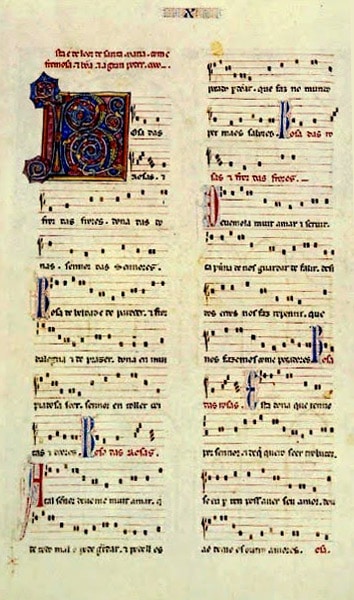 X
sta e de loor de santa maria. come
fremosa ⁊ bõa. ⁊ a gran poder.
Rosa das
rosas. ⁊
fror das frores. dona das do
nas. sennor das sennores.
Rosa de beldade de parecer. ⁊ fror
dalegria ⁊ de prazer. dona en mui
piadosa seer. sennor en toller coi
tas ⁊ doores. Rosa das rosas.
Atal señor deue ome muit amar. q̃
de todo mal o pode gͥdar. ⁊ pode ll os
pecad perdõar. que faz no mundo
per maos sabores. Rosa das ro
sas ⁊ fror das frores.
Deuemola muit amar ⁊ seruir.
ca punna de nos guardar de falir. desi
dos erros nos faz repentir. que
nos fazemos come pecadores. Rosa
das rosas. Esta dona que tenno
por sennor. ⁊ de q̃ quero seer trobador.
se eu per ren poss auer seu amor. dou
ao demo os outros amores. osa.